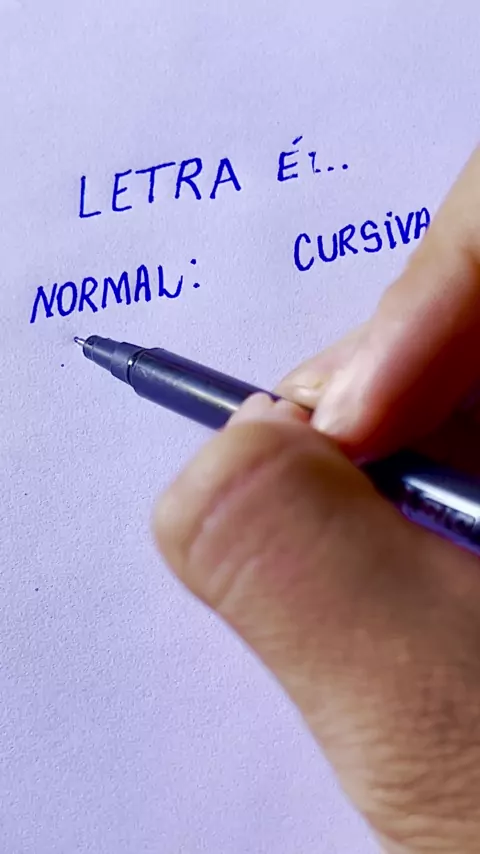 LETRA É:..
NORMAL: CURSIVA